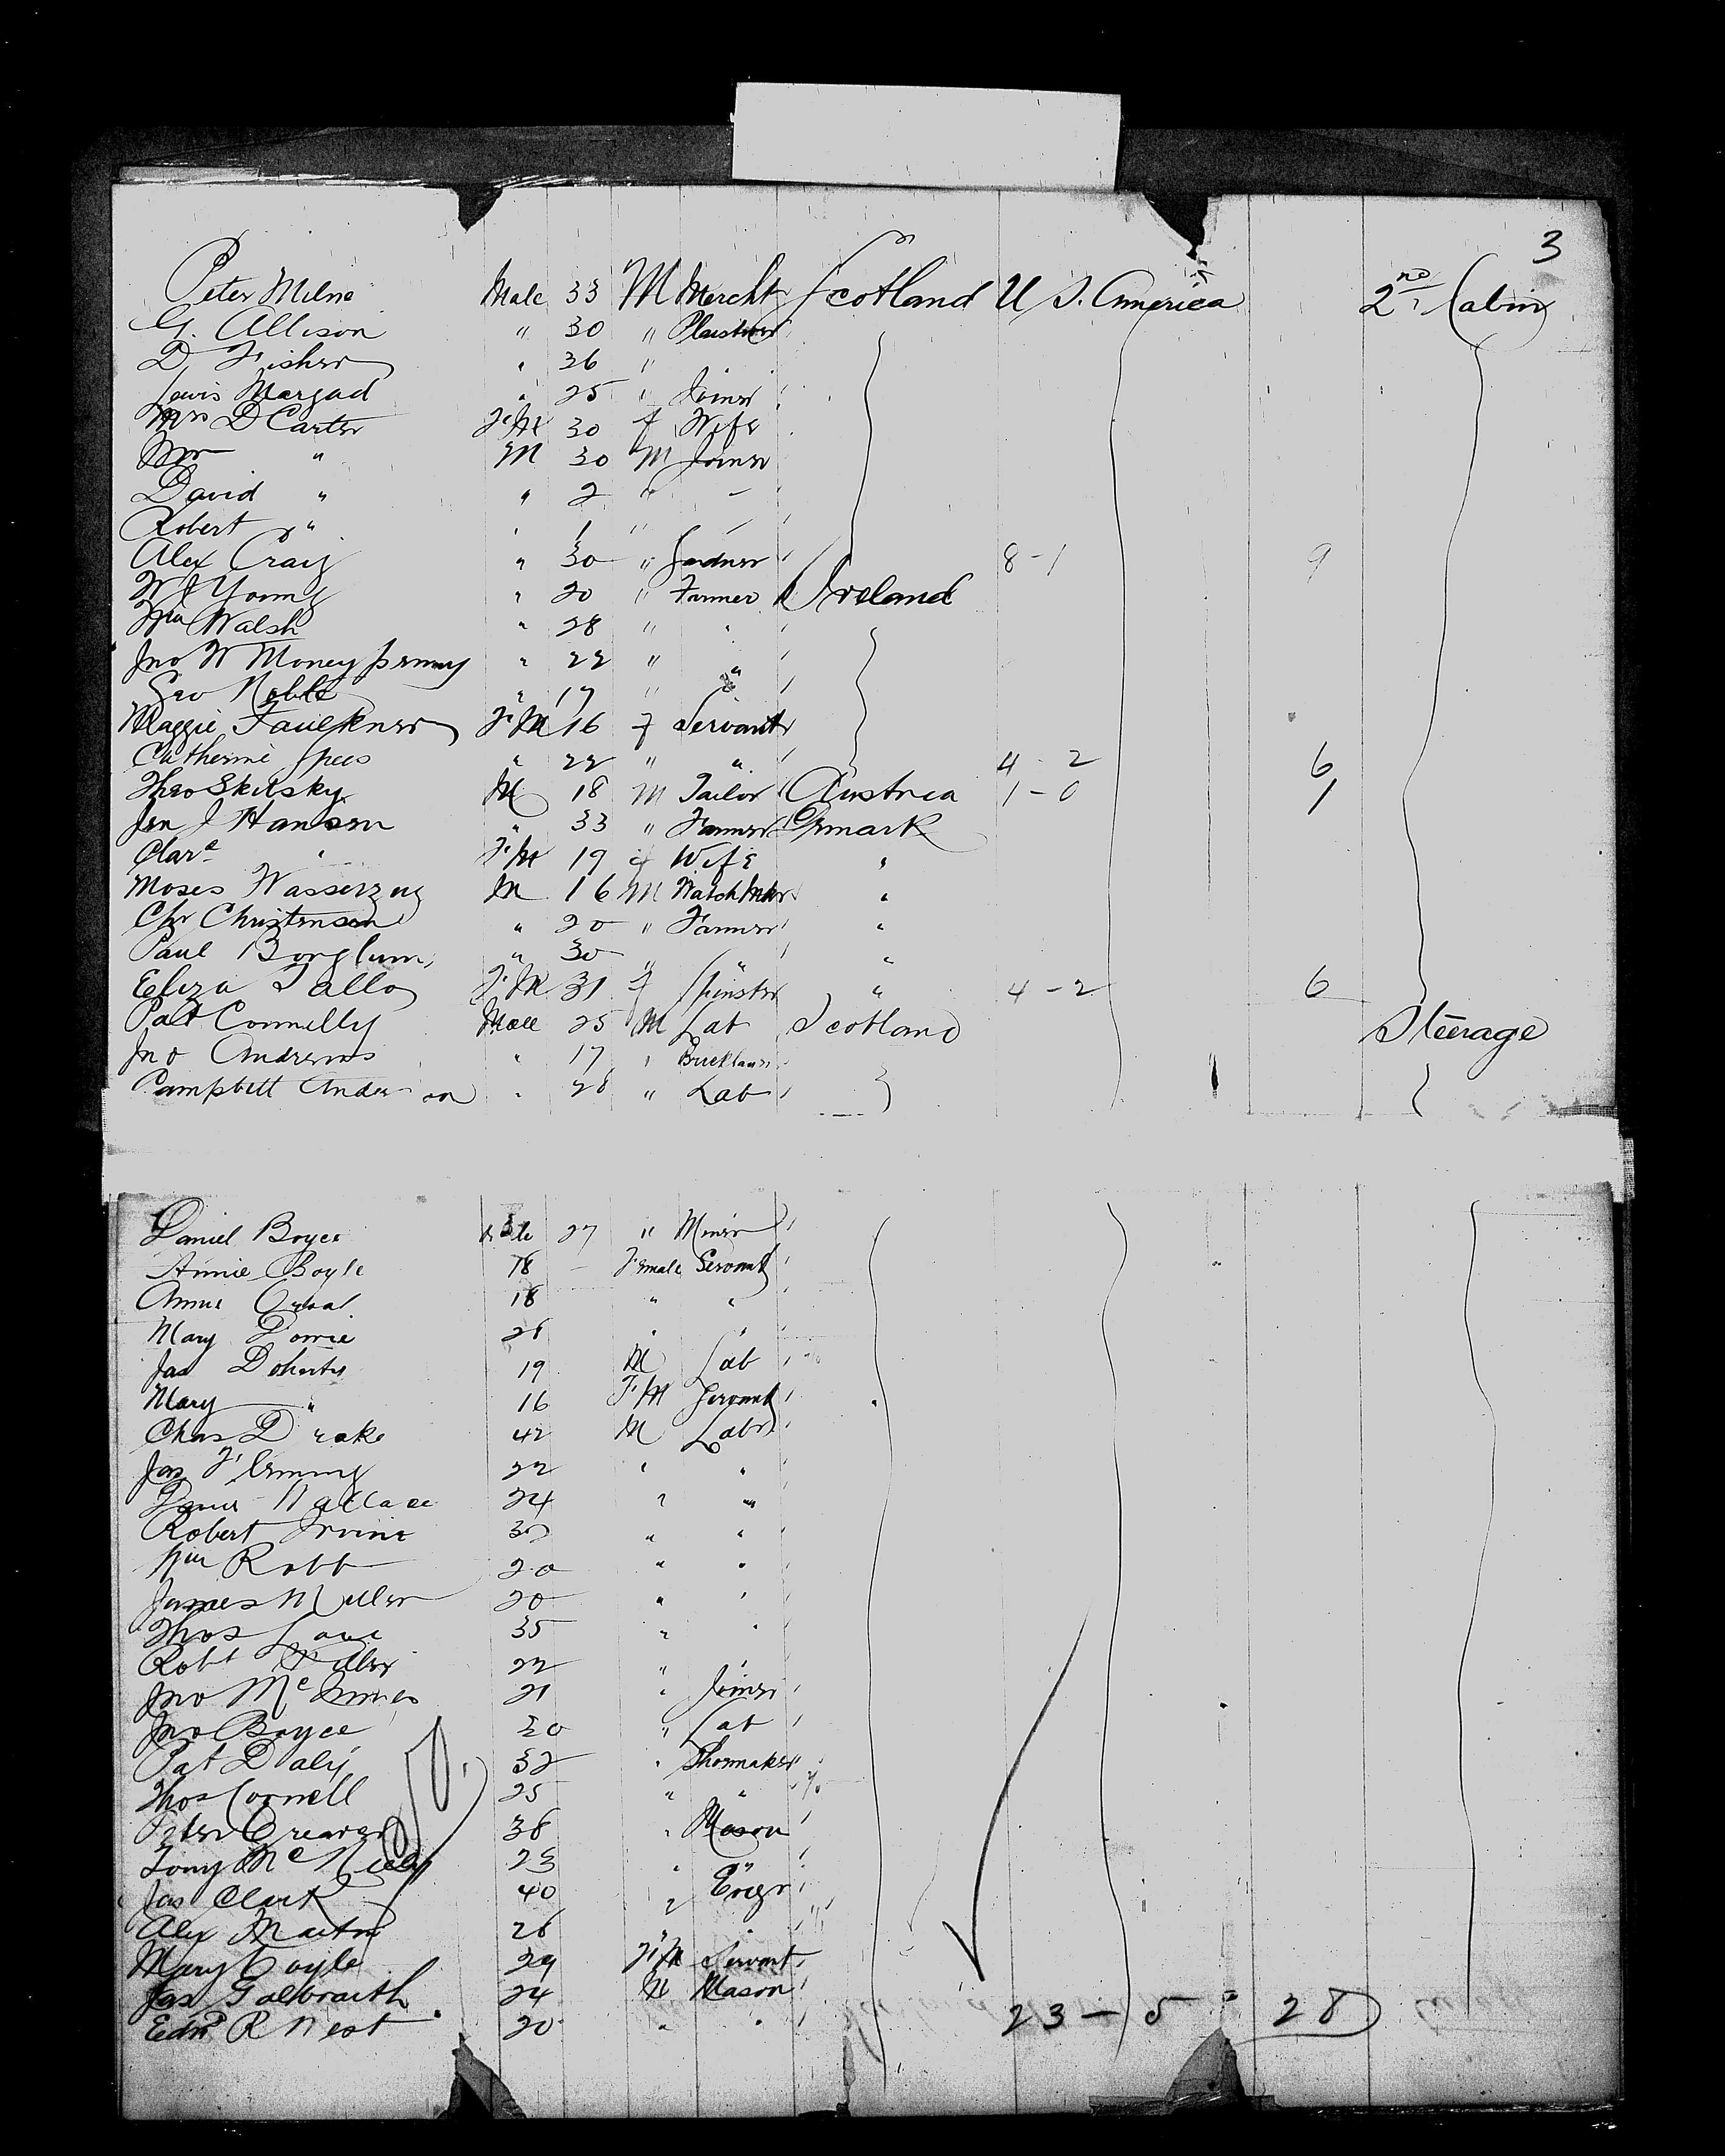 3
Peter Milne Male 33 M Mercht Scotland U S. America 2nd Cabin
G. Allison " 30 " Plastrer
D Fisher " 26 "
Lewis Margad " 25 " Joiner
Mrs D Carter F.M 30 f Wife
" M 30 M Joiner
David " " 2 " -
Robert " " 1 "
Alex Craig " 30 " Gardner 8-1 9
W J Young " 20 " Farmer Ireland
Wm Walsh " 28 " "
Jno W Moneypenny " 22 " "
Geo Noble " 17 " "
Maggie Faulkner F.M 16 f Servant
Catherine Spees " 22 " " 4-2 6
Theo Skilsky M 18 M Tailor Austria 1-0 1
Jen J Hansen " 33 " Farmer
Clare " F.M 19 f Wife "
Moses Wasserzug M 16 M WatchMkr "
Chr Christensen " 20 " Farmer "
Paul Borglum " 30 " " "
Eliza Tallo F.M 31 f Spinster " 4-2 6
Pat Connelly Male 25 M Lab Scotland Steerage
Jno Andrews " 17 "
Campbell Anderson " 28 " Lab
Daniel Boyce 27 " Miner
Annie Boyle 18 - Female Servant
Annie 18 " "
Mary Dowie 28 " "
Jas Doherty 19 M Lab
Mary " 16 F M Servant
Chas Drake 42 M Labr
Jas Fleming 22 " "
Wallace 24 " "
Robert Irvine 30 " "
Wm Robb 20 " "
James Miller 20 " "
Thos 35 " "
Robt 22 " "
Jno McInnes 21 " Joiner
Jno Boyce 30 " Lab
Pat Daly 32 " Shoemaker
Thos Connell 25 " "
Peter Greaves 38 " Mason
Tony 23 " "
Jas Clark 40 " Engr
Alex Martin 28 " "
Mary Coyle 29 F.M Servant
Jas Galbraith 24 M Mason
Edwd R West 20 " "
23-5 = 28